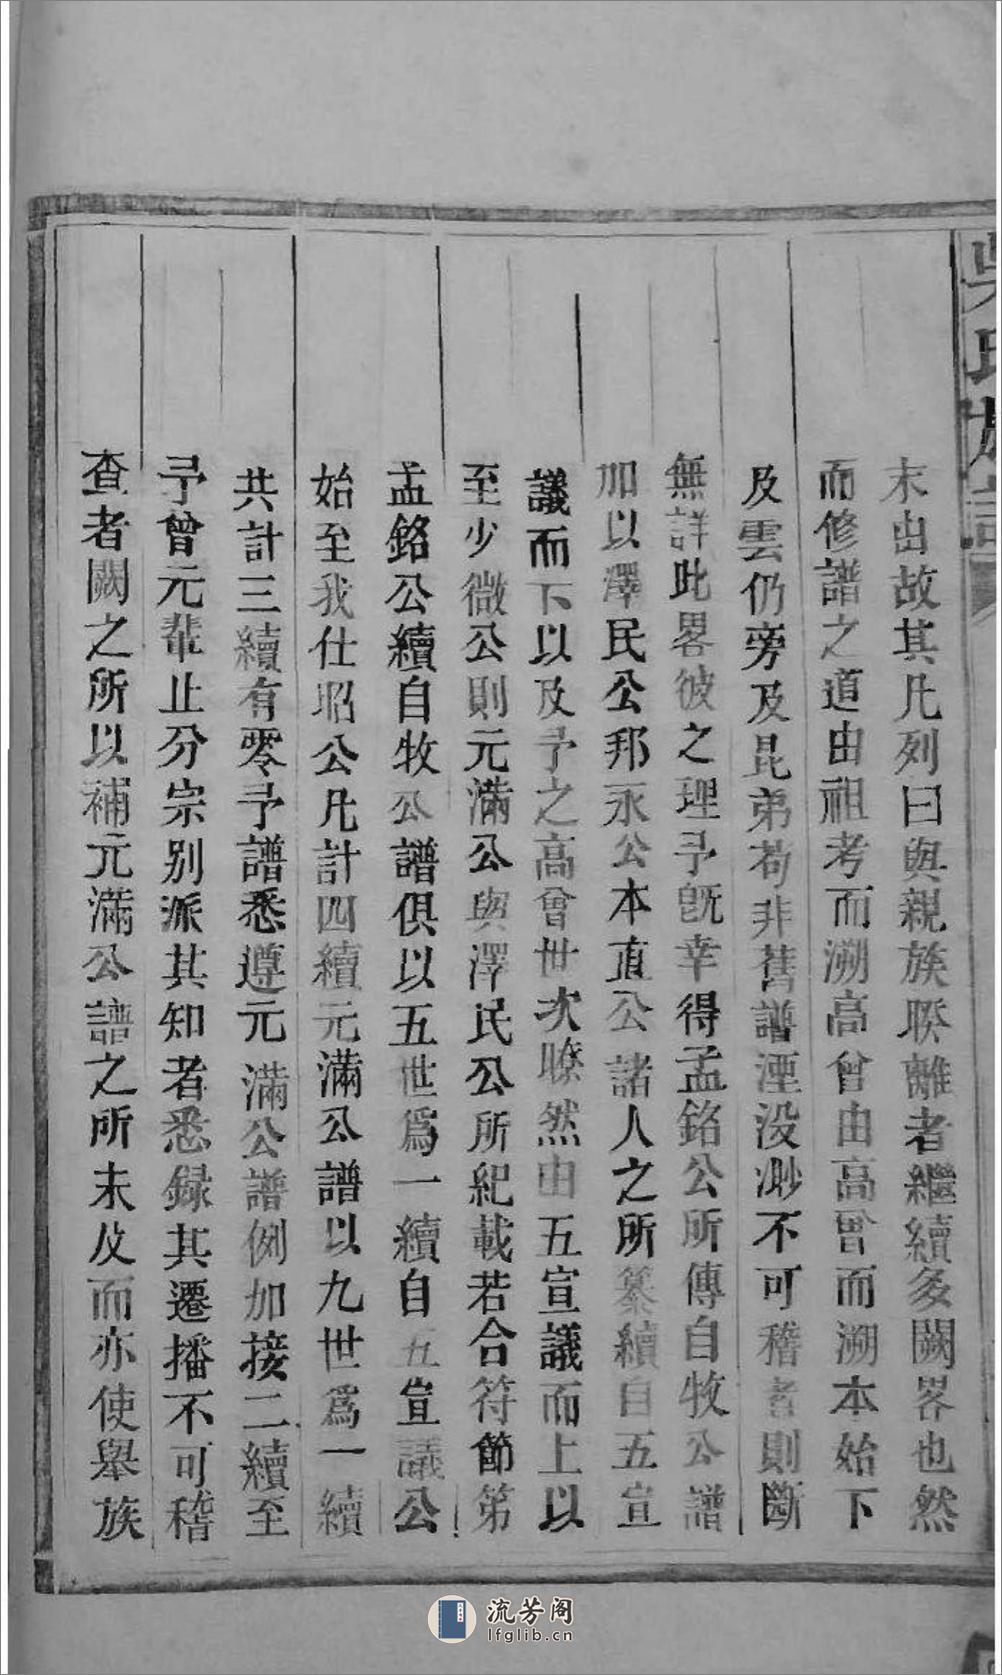 吳氏族譜
末出故其凡列曰與親族聮離者繼續多闕畧也然
而修譜之道由祖考而溯高曾由高曾而溯本始下
及雲仍旁及昆弟苟非舊譜湮没渺不可稽者則斷
無詳此畧彼之理予旣幸得孟銘公所傳自牧公譜
加以澤民公邦永公本直公諸人之所纂續自五宣
議而下以及予之高曾世次暸然由五宣議而上以
至少微公則元滿公與澤民公所紀載若合符節第
孟銘公續自牧公譜俱以五世爲一續自五宣議公
始至我仕昭公凡計四續元滿公譜以九世爲一續
共計三續有零予譜悉遵元滿公譜例加接二續至
予曾元輩止分宗别派其知者悉録其遷播不可稽
查者闕之所以補元滿公譜之所未及而亦使舉族
流芳阁
lfglib.cn